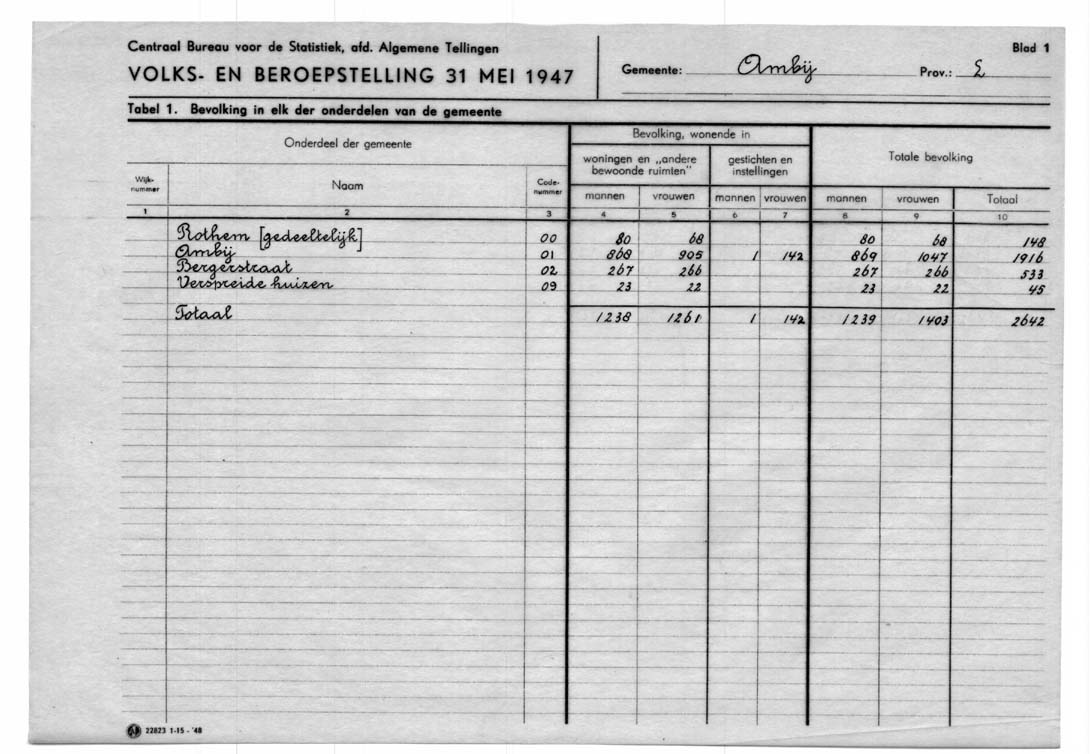 Centraal Bureau voor de Statistiek, afd. Algemene Tellingen
VOLKS- EN BEROEPSTELLING 31 MEI 1947
Gemeente: Ambij
Prov.: L
Blad 1
Tabel 1. Bevolking in elk der onderdelen van de gemeente
Onderdeel der gemeente
Bevolking, wonende in
Totale bevolking
woningen en „andere bewoonde ruimten"
gestichten en instellingen
Wijk-nummer Naam Code-nummer mannen vrouwen mannen vrouwen mannen vrouwen Totaal
1 2 3 4 5 6 7 8 9 10
Rothem [gedeeltelijk] 00 80 68 80 68 148
Ambij 01 868 905 1 142 869 1047 1916
Bergerstraat 02 267 266 267 266 533
Verspreide huizen 09 23 22 23 22 45
Totaal 1238 1261 1 142 1239 1403 2642
22823 1-15-'48